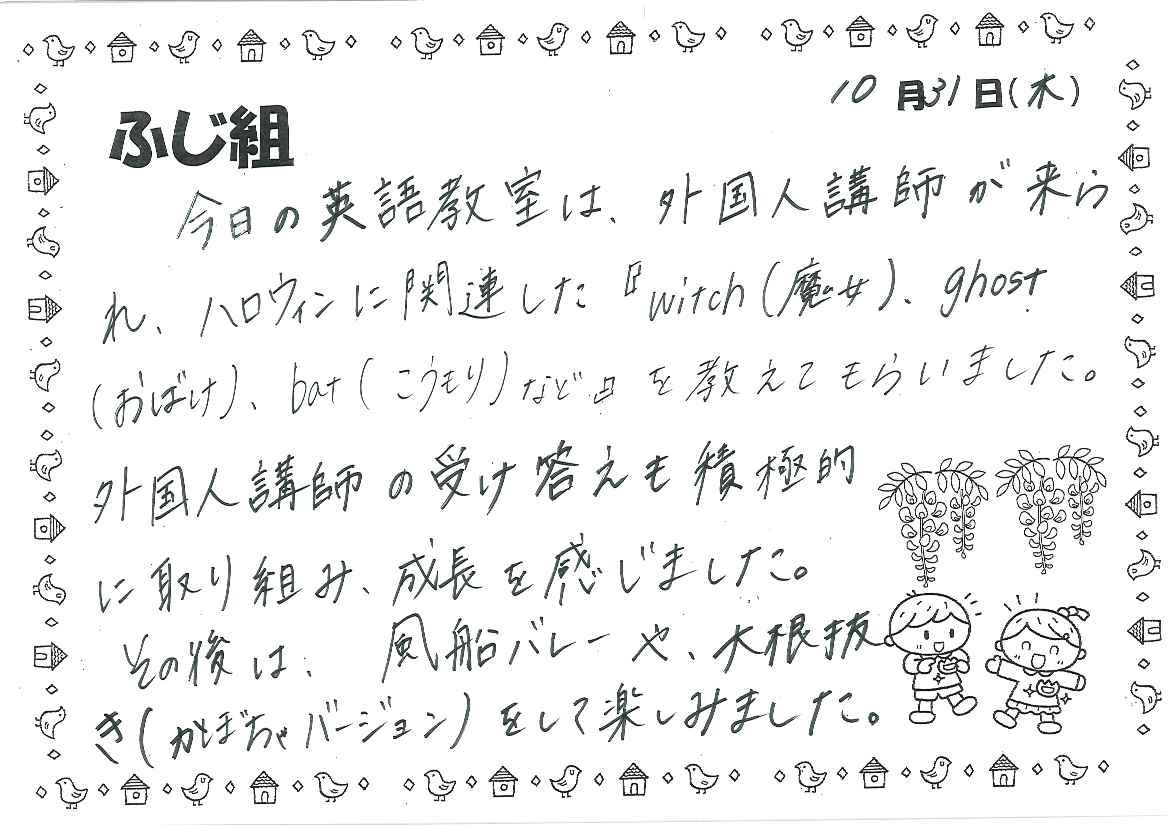 10月31日(木)
ふじ組
今日の英語教室は、外国人講師が来ら
れ、ハロウィンに関連した『witch(魔女)、ghost
(おばけ)、bat(こうもり)など』を教えてもらいました。
外国人講師の受け答えも積極的
に取り組み、成長を感じました。
その後は、風船バレーや、大根抜
き(かぼちゃバージョン)をして楽しみました。